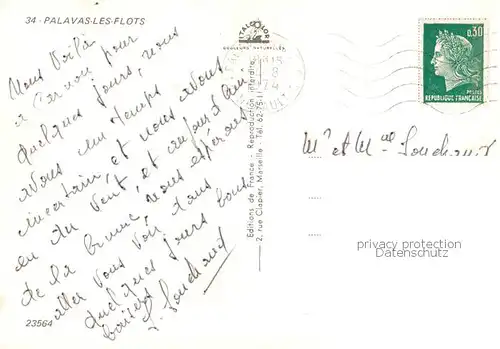 34 - PALAVAS-LES-FLOTS
ITALCOLOR
COULEURS NATURELLES
Nous voilà
à Carnon pour
quelques jours, nous
avons un temps
incertain, et nous avons
eu du vent, et aujourd'hui
de la brume, nous espérons
aller vous voir dans
quelques jours bons
baisers
23564
Editions de France - Reproduction interdite
2, rue Clapier, Marseille - Tél. 62-75
0,30
POSTES
REPUBLIQUE FRANÇAISE
Mr et Mme
privacy protection
Datenschutz